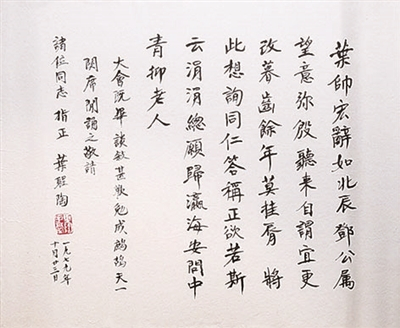 葉帥宏辭如北辰鄧公属
望意弥殷聽来自謂宜更
改暮齒餘年莫挂脣 將
此想詢同仁答稱正欲若斯
云涓涓總願歸瀛海安問中
青抑老人
大會既畢談叙甚歡勉成鷓鴣天一
闋席間誦之敬請
諸位同志 指正 葉聖陶
一九七九年
十月廿三日